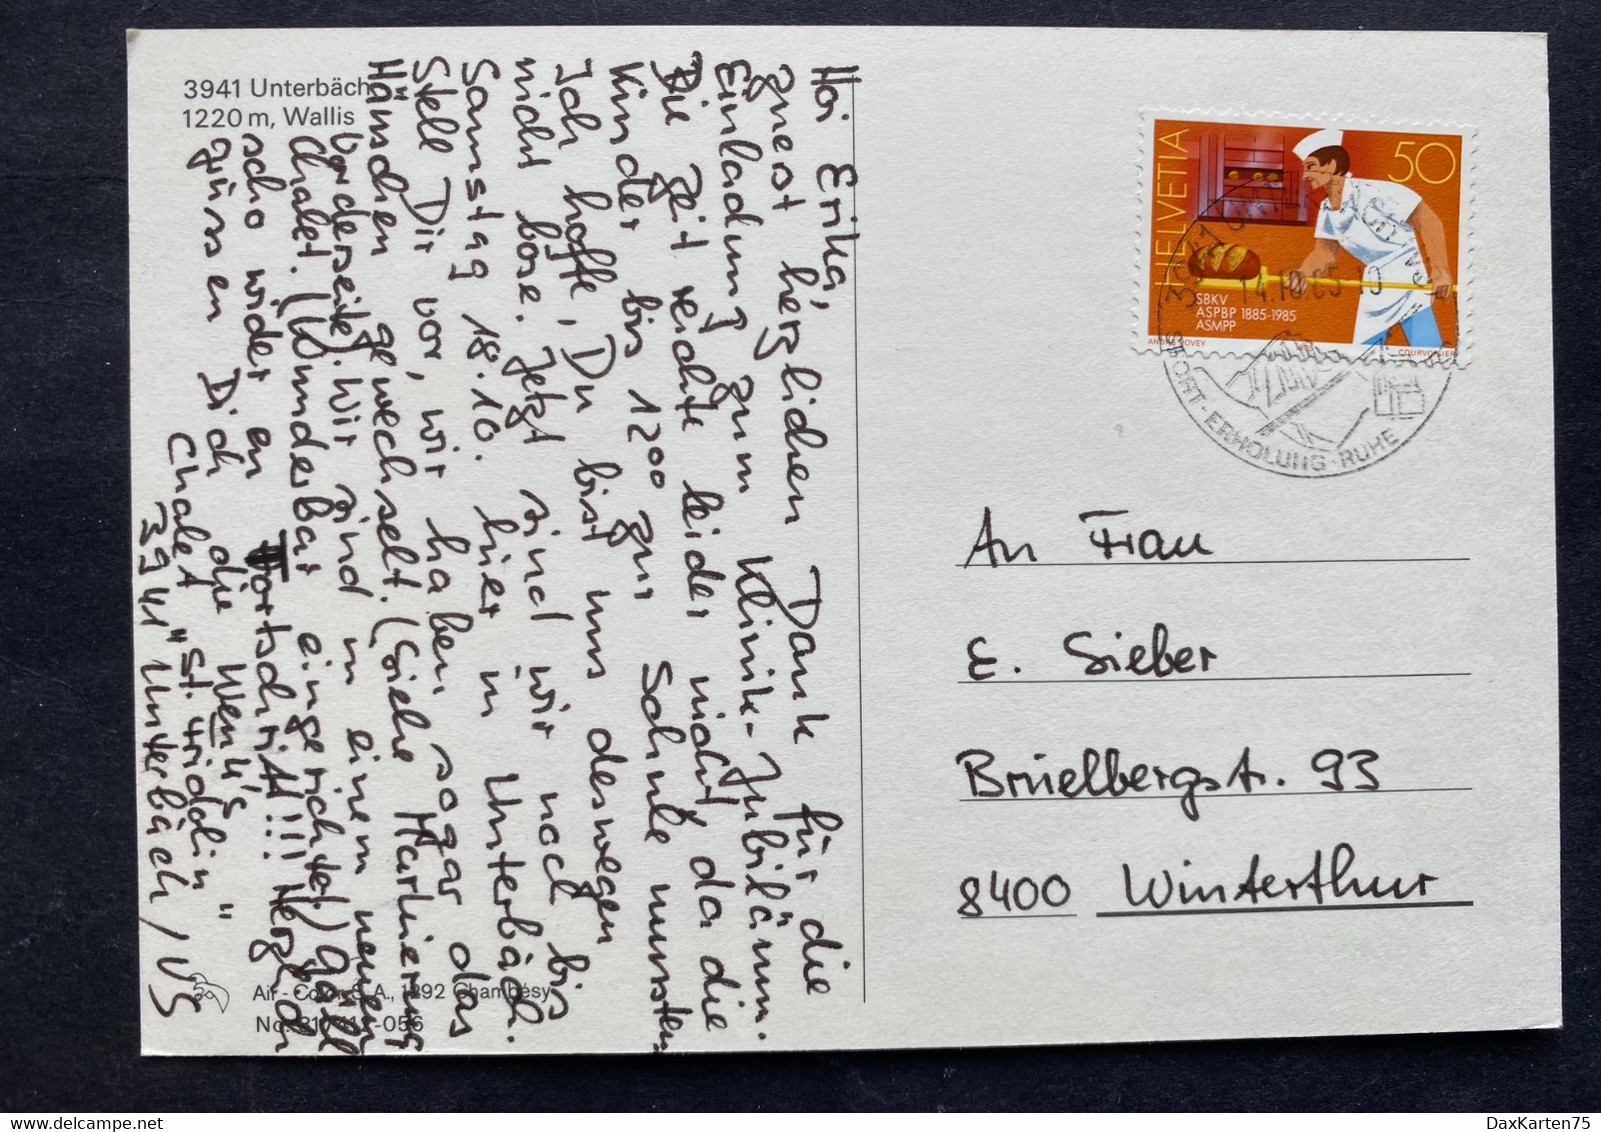 3941 Unterbäch
1220 m, Wallis
Hoi Erika,
zuest herzlichen Dank für die
Einladung zum Klinik-Jubiläum.
Die Zeit reichte leider nicht, da die
Kinder bis 1200 zur Schule mussten.
Ich hoffe, Du bist uns deswegen
nicht böse. Jetzt sind wir noch bis
Samstag 18.10. hier in Unterbäch.
Stell Dir vor, wir haben sogar das
Häuschen gewechselt. (Siehe Markierung
Vorderseite). Wir sind in einem neuen
Chalet. (Wunderbar eingerichtet) Gäll
scho wider en Fortschritt!!! Herzlich
grüssen Dich die Wen4's
Chalet "St. Fridolin"
3941 Unterbäch / VS
Air-Color S.A., 1292 Chambésy
No.
HELVETIA
50
SBKV
ASPBP 1885-1985
ASMPP
COURVOISIER
14.10.85
SPORT · ERHOLUNG · RUHE
An Frau
E. Sieber
Brüelbergstr. 93
8400 Winterthur
DaxKarten75